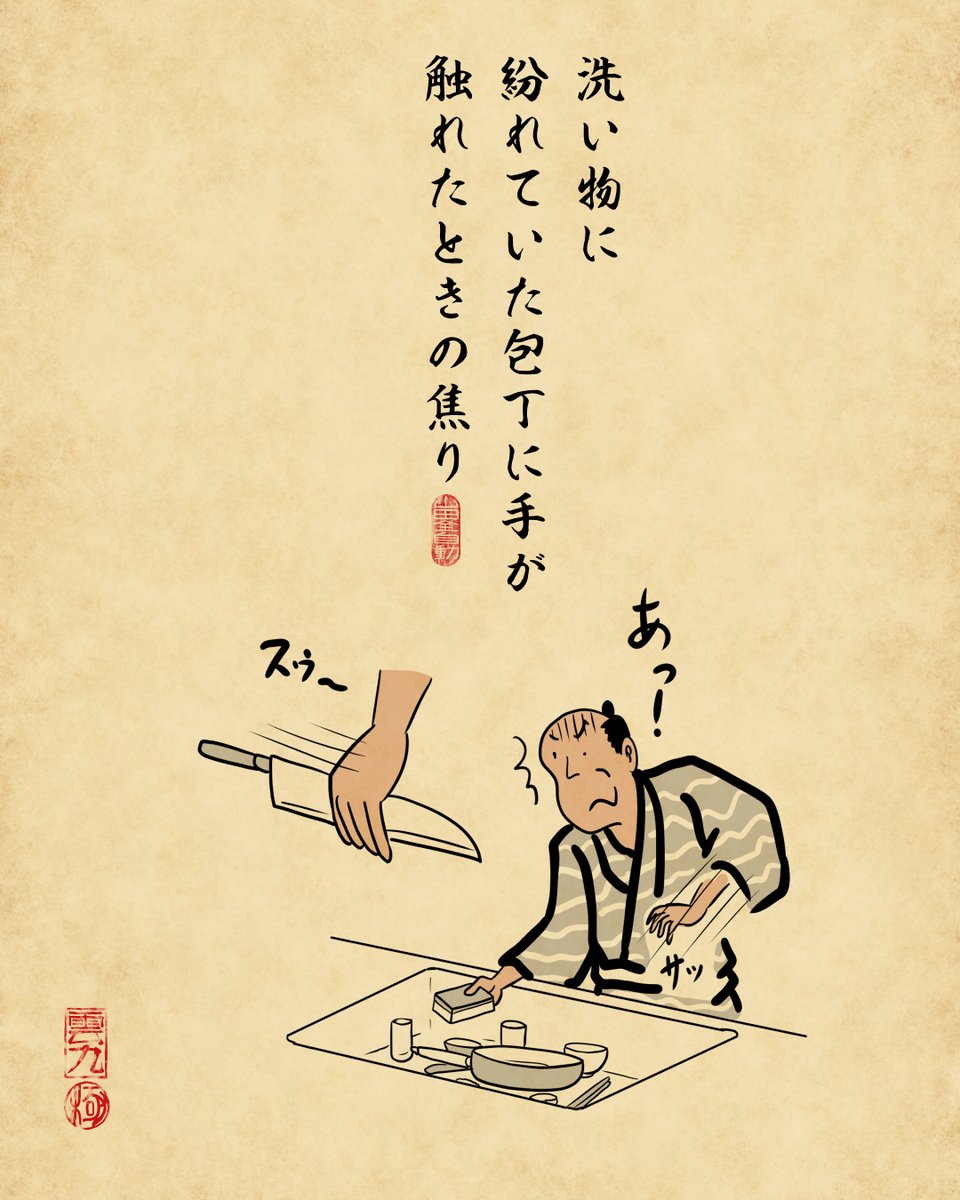 洗い物に
紛れていた包丁に手が
触れたときの焦り
あっ!
スゥ〜
サッ